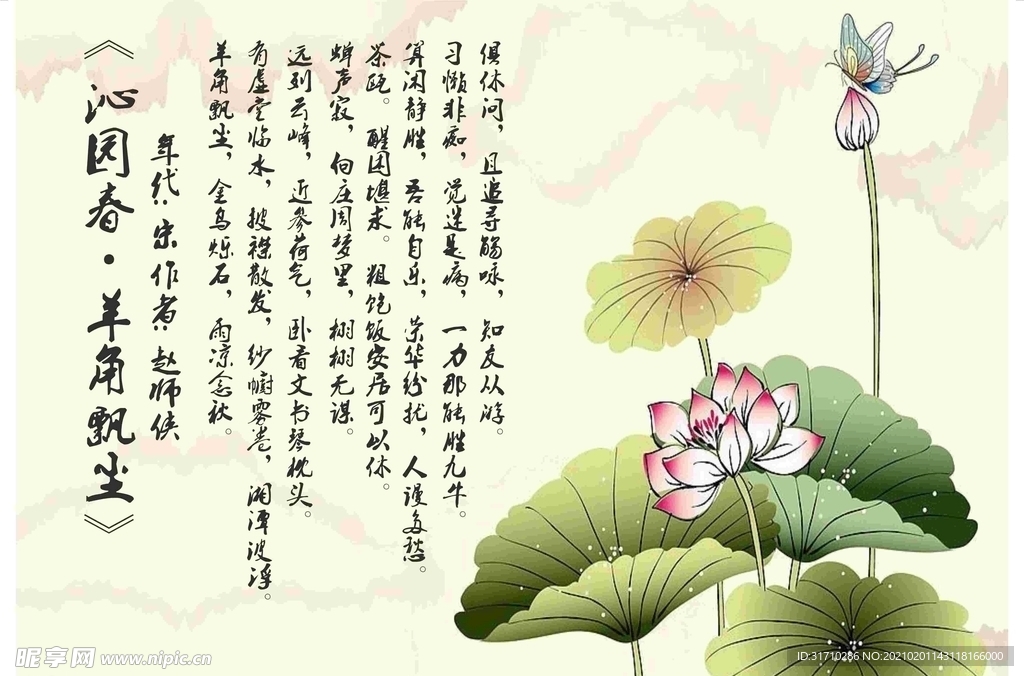 《沁园春·羊角飘尘》
年代：宋作者：赵师侠
羊角飘尘，金乌烁石，雨凉念秋。
有虚堂临水，披襟散发，纱幮雾卷，湘潭波浮。
远列云峰，近参荷气，卧看文书琴枕头。
蝉声寂，向庄周梦里，栩栩无谋。
茶瓯。醒困堪求。粗饱饭安居可以休。
算闲静胜，吾能自乐，荣华纷扰，人谩多愁。
习懒非痴，觉迷是病，一力那能胜九牛。
俱休问，且追寻觞咏，知友从游。
昵享网 www.nipic.cn
ID:31710286 NO:20210201143118166000